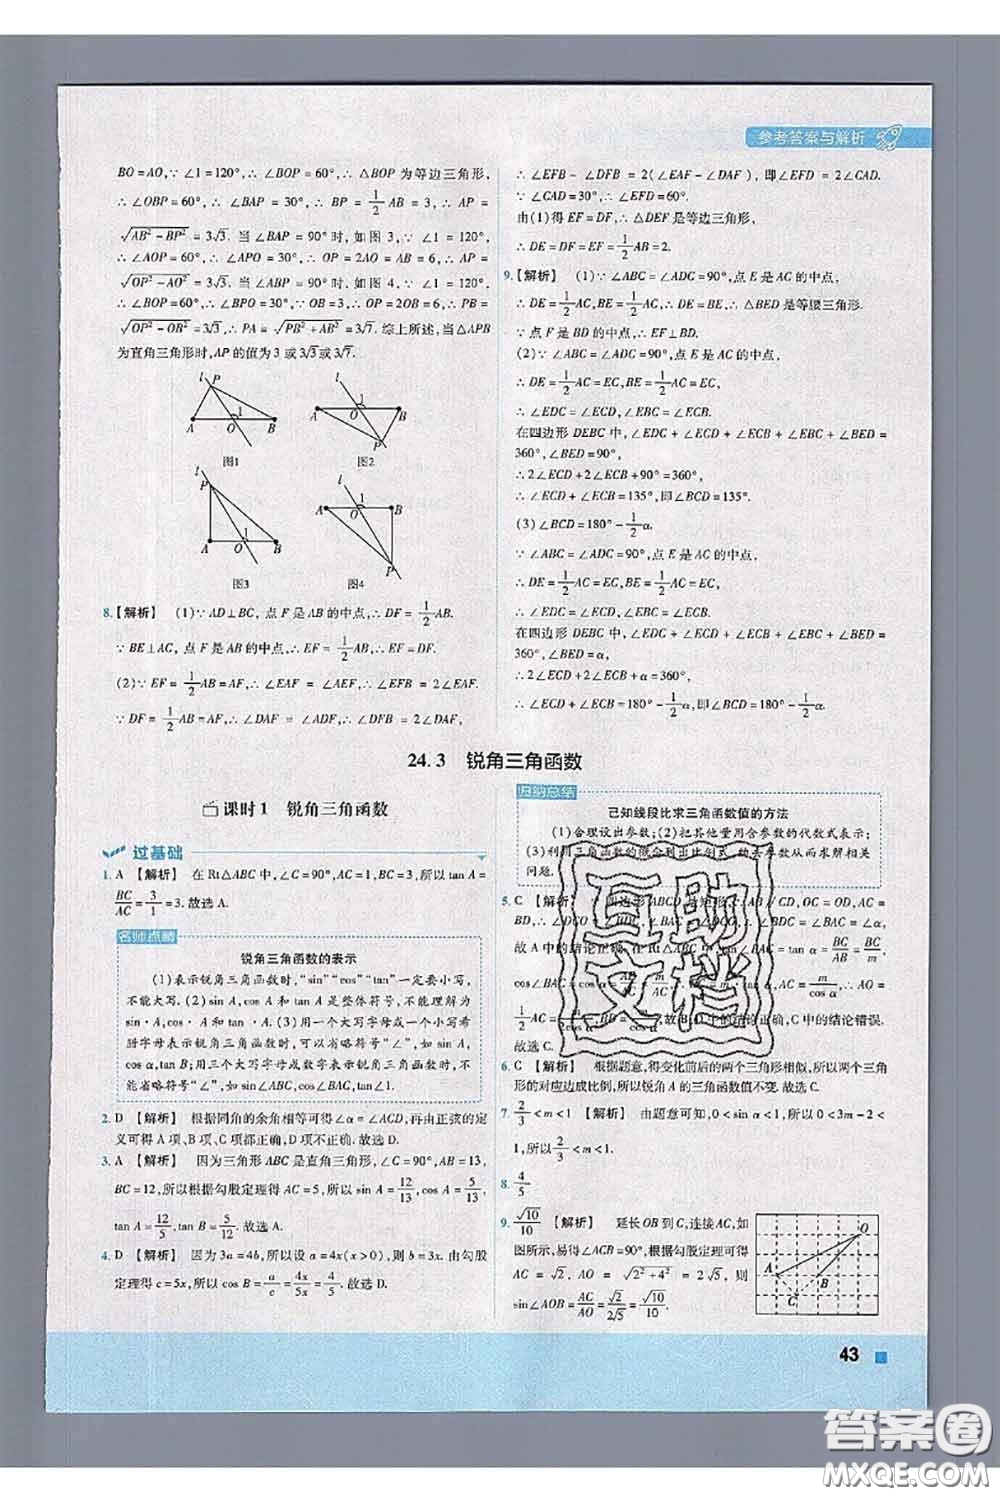 参考答案与解析
BO=AO,∵∠1=120°,∴∠BOP=60°,∴△BOP为等边三角形,
∴∠OBP=60°,∴∠BAP=30°,∴BP=1/2AB=3,∴AP=
√(AB²-BP²)=3√3.当∠BAP=90°时,如图3,∵∠1=120°,
∴∠AOP=60°,∴∠APO=30°,∴OP=2AO=AB=6,∴AP=
√(OP²-AO²)=3√3.当∠ABP=90°时,如图4,∵∠1=120°,
∴∠BOP=60°,∴∠BPO=30°,∵OB=3,∴OP=2OB=6,∴PB=
√(OP²-OB²)=3√3,∴PA=√(PB²+AB²)=3√7.综上所述,当△APB
为直角三角形时,AP的值为3或3√3或3√7.
图1
图2
图3
图4
8.【解析】 (1)∵AD⊥BC,点F是AB的中点,∴DF=1/2AB.
∵BE⊥AC,点F是AB的中点,∴EF=1/2AB,∴EF=DF.
(2)∵EF=1/2AB=AF,∴∠EAF=∠AEF,∴∠EFB=2∠EAF.
∵DF=1/2AB=AF,∴∠DAF=∠ADF,∴∠DFB=2∠DAF,
∴∠EFB-∠DFB=2(∠EAF-∠DAF),即∠EFD=2∠CAD.
∵∠CAD=30°,∴∠EFD=60°.
由(1)得EF=DF,∴△DEF是等边三角形,
∴DE=DF=EF=1/2AB=2.
9.【解析】 (1)∵∠ABC=∠ADC=90°,点E是AC的中点,
∴DE=1/2AC,BE=1/2AC,∴DE=BE,∴△BED是等腰三角形.
∵点F是BD的中点,∴EF⊥BD.
(2)∵∠ABC=∠ADC=90°,点E是AC的中点,
∴DE=1/2AC=EC,BE=1/2AC=EC,
∴∠EDC=∠ECD,∠EBC=∠ECB.
在四边形DEBC中,∠EDC+∠ECD+∠ECB+∠EBC+∠BED=
360°,∠BED=90°,
∴2∠ECD+2∠ECB+90°=360°,
∴∠ECD+∠ECB=135°,即∠BCD=135°.
(3)∠BCD=180°-1/2α.
∵∠ABC=∠ADC=90°,点E是AC的中点,
∴DE=1/2AC=EC,BE=1/2AC=EC,
∴∠EDC=∠ECD,∠EBC=∠ECB.
在四边形DEBC中,∠EDC+∠ECD+∠ECB+∠EBC+∠BED=
360°,∠BED=α,
∴2∠ECD+2∠ECB+α=360°,
∴∠ECD+∠ECB=180°-1/2α,即∠BCD=180°-1/2α.
24.3 锐角三角函数
课时1 锐角三角函数
过基础
1.A 【解析】 在Rt△ABC中,∠C=90°,AC=1,BC=3,所以tan A=
BC/AC=3/1=3.故选A.
名师点睛
锐角三角函数的表示
(1)表示锐角三角函数时,“sin”“cos”“tan”一定要小写,
不能大写.(2)sin A,cos A和tan A是整体符号,不能理解为
sin·A,cos·A和tan·A.(3)用一个大写字母或一个小写希
腊字母表示锐角三角函数时,可以省略符号“∠”,如sin A,
cos A,tan B;用三个大写字母或数字表示锐角三角函数时,不
能省略符号“∠”,如sin∠ABC,cos∠ABC,tan∠1.
2.D 【解析】 根据同角的余角相等可得∠α=∠ACD,再由正弦的定
义可得A项、B项、C项都正确,D项不正确.故选D.
3.A 【解析】 因为三角形ABC是直角三角形,∠C=90°,AB=13,
BC=12,所以根据勾股定理得AC=5,所以sin A=12/13,cos A=5/13,
tan A=12/5,tan B=5/12.故选A.
4.D 【解析】 因为3a=4b,所以设a=4x(x>0),则b=3x.由勾股
定理得c=5x,所以cos B=a/c=4x/5x=4/5.故选D.
归纳总结
已知线段比求三角函数值的方法
(1)合理设出参数;(2)把其他量用含参数的代数式表示;
(3)利用三角函数的概念列出比例式,约去参数从而求解相关
问题.
5.C 【解析】 四边形ABCD是矩形,∴AB//CD,OC=OD,AC=
BD,∴∠BDC=∠α,
故A中的结论正确
BC=m·tan α
AO=
故选C.
6.C 【解析】 根据题意,得变化前后的两个三角形相似,所以两个三角
形的对应边成比例,所以锐角A的三角函数值不变.故选C.
7.2/3<m<1 【解析】 由题意可知,0<sin α<1,所以0<3m-2<
1,所以2/3<m<1.
8.4/5
9.√10/10 【解析】 延长OB到C,连接AC,如
图所示,易得∠ACB=90°,根据勾股定理可得
AC=√2,AO=√(2²+4²)=2√5,则
sin∠AOB=AC/AO=√2/2√5=√10/10.
43
互助
文档
答案圈
MXQE.COM